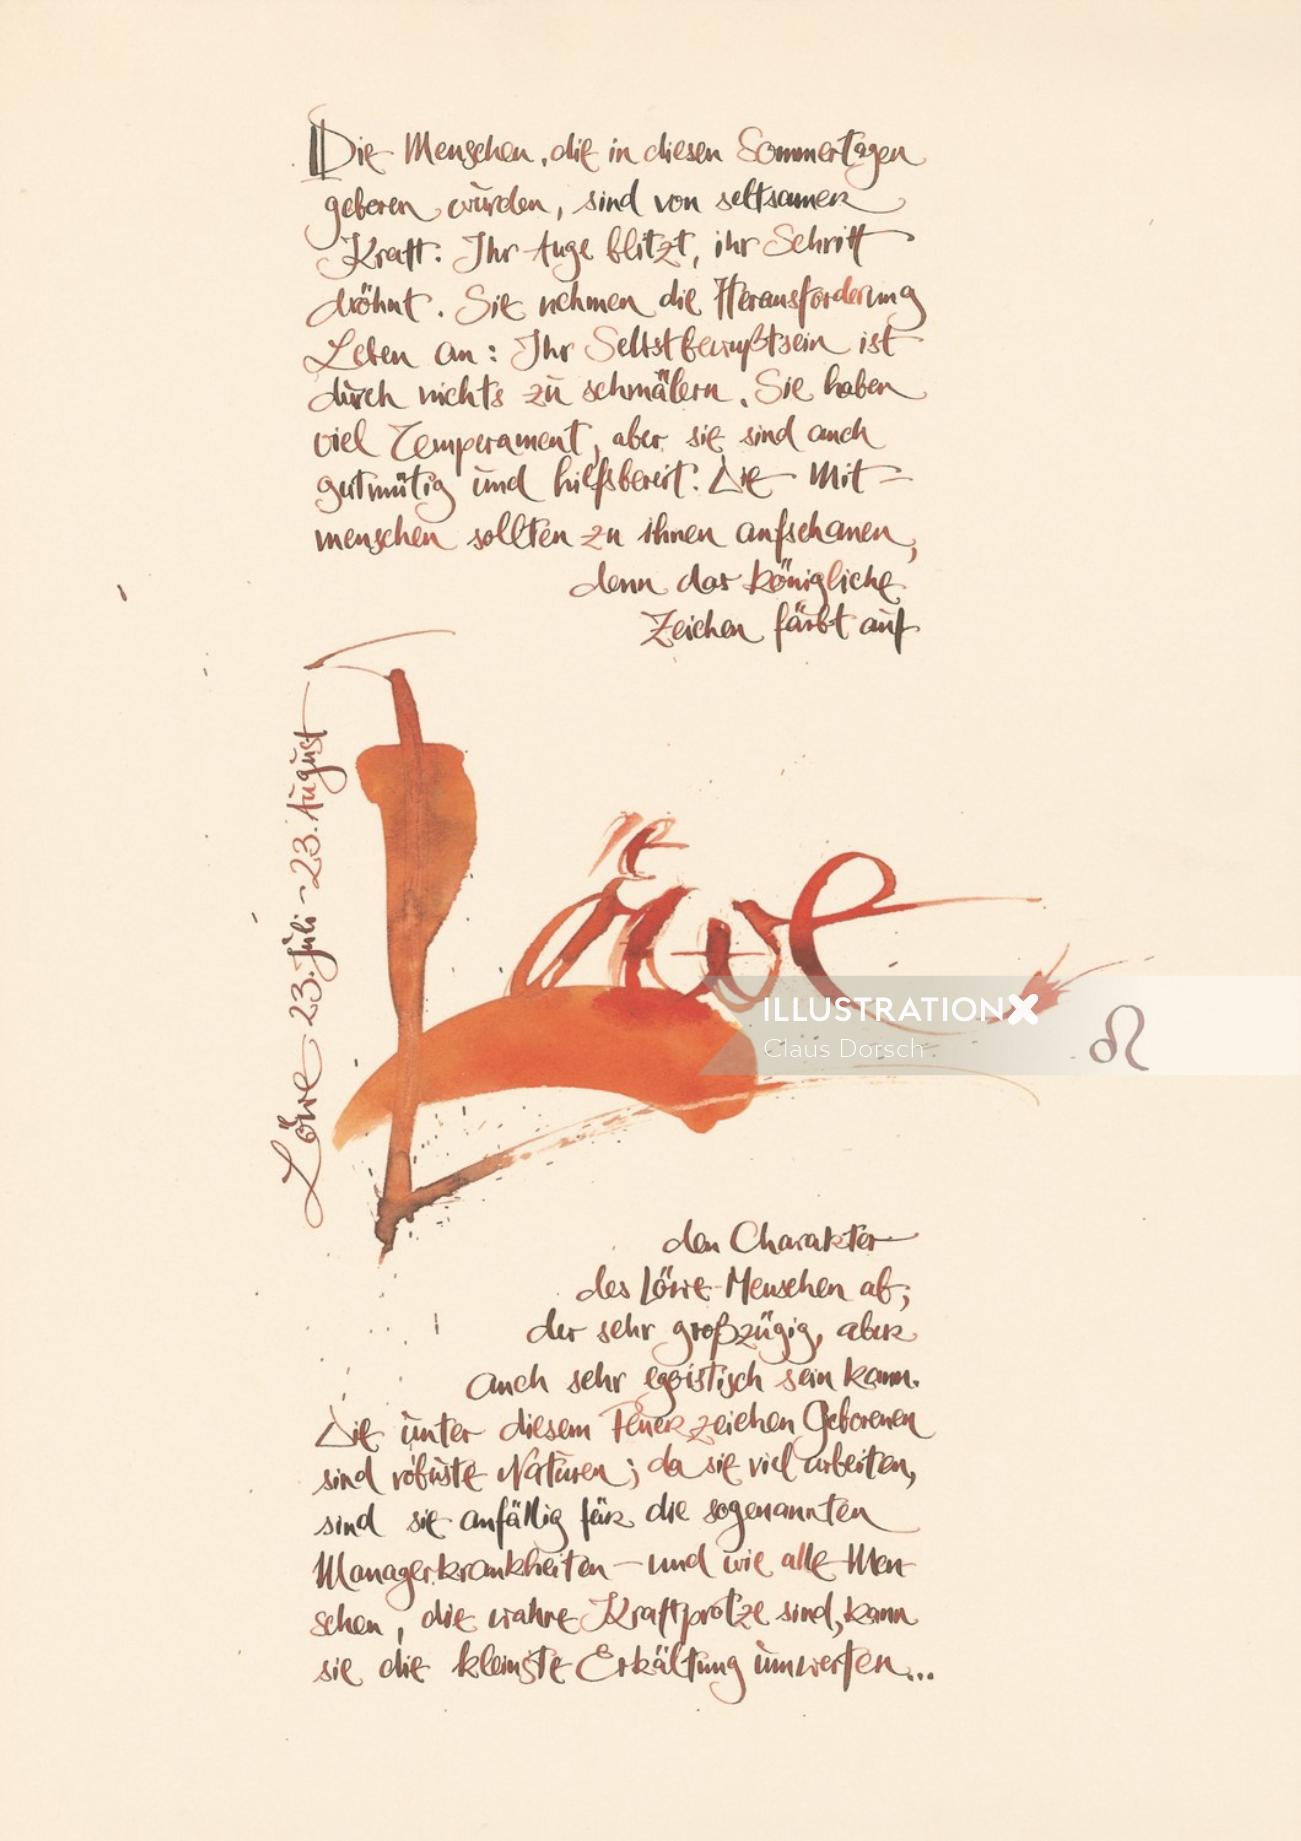 Die Menschen, die in diesen Sommertagen
geboren wurden, sind von seltsamer
Kraft: Ihr Auge blitzt, ihr Schritt
dröhnt. Sie nehmen die Herausforderung
Leben an: Ihr Selbstbewußtsein ist
durch nichts zu schmälern. Sie haben
viel Temperament, aber sie sind auch
gutmütig und hilfsbereit. Die Mit-
menschen sollten zu ihnen aufschauen,
denn das königliche
Zeichen färbt auf
Löwe 23. Juli - 23. August
Löwe
ILLUSTRATIONX
Claus Dorsch
♌
den Charakter
des Löwe-Menschen ab;
der sehr großzügig, aber
auch sehr egoistisch sein kann.
Die unter diesem Feuerzeichen Geborenen
sind robuste Naturen; da sie viel arbeiten,
sind sie anfällig für die sogenannten
Managerkrankheiten – und wie alle Men-
schen, die wahre Kraftprotze sind, kann
sie die kleinste Erkältung umwerfen...